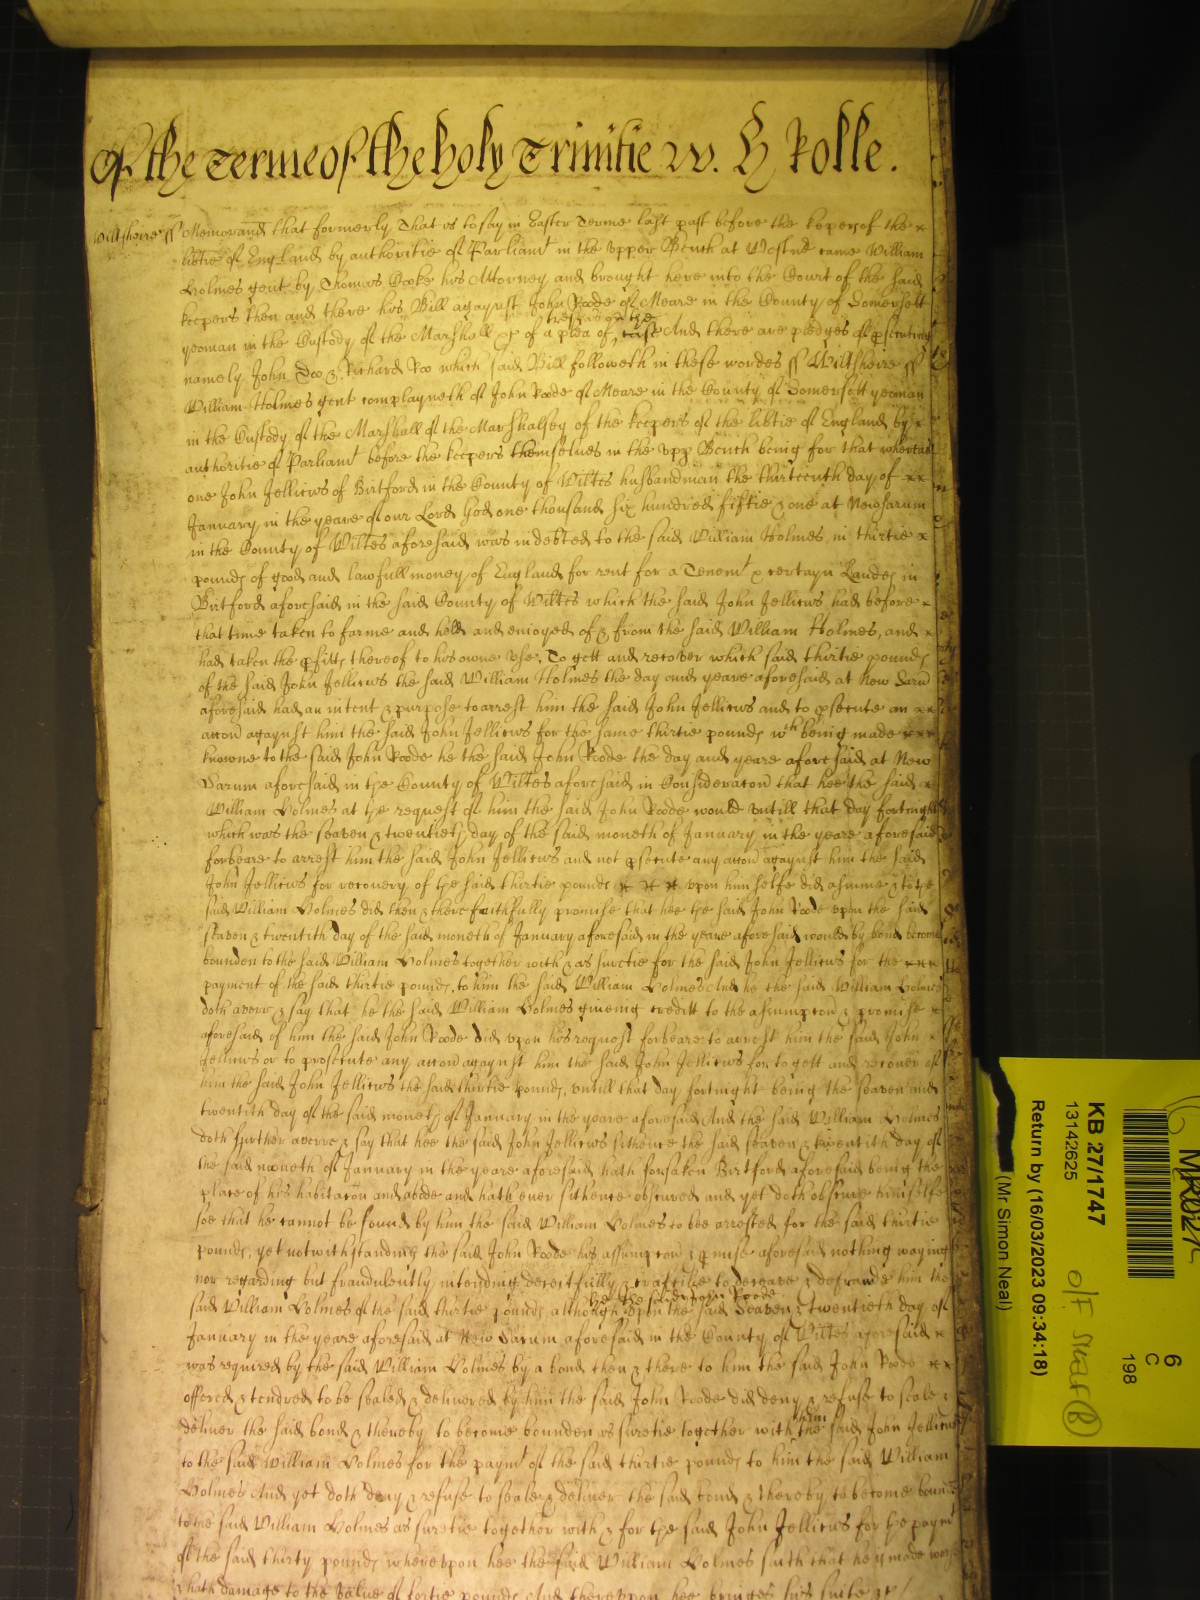 Of the Terme of the holy Trinitie w. H Rolle.
Wiltsheire ss Memorand that formerly That is to say in Easter Terme last past before the kepers of the x
libtie of England by authoritie of Parliamt in the vpper Bench at Westmr came William
Holmes gent by Thomas Cooke his Attorney and brought here into the Court of the said
keepers then and there his Bill agaynst John Roode of Meare in the County of Somersett
trespas on the
yeoman in the Custody of the Marshall &c of a plea of case And there are pledges of psecuting
namely John Doo & Richard Roo which said Bill followeth in these wordes ss Wiltsheire ss
William Holmes gent complayneth of John Roode of Meare in the County of Somersett yeoman
in the Custody of the Marshall of the Marshalsey of the keepers of the libtie of England by x
authoritie of Parliamt before the keepers themselues in the vpp Bench being for that whereas
one John Jellicus of Birtford in the County of Wiltes husbandman the thirteenth day of xx
January in the yeare of our Lord God one thousand six hundred fiftie & one at Newsarum
in the County of Wiltes aforesaid was indebted to the said William Holmes in thirtie x
pounds of good and lawfull money of England for rent for a Tenemt & certayn Landes in
Birtford aforesaid in the said County of Wiltes which the said John Jellicus had before x
that time taken to farme and held and enioyed of & from the said William Holmes, and x
had taken the pfitts thereof to his owne vse, To gett and recover which said thirtie pounds
of the said John Jellicus the said William Holmes the day and yeare aforesaid at New Sarum
aforesaid had an intent & purpose to arrest him the said John Jellicus and to psecute an xx
accon agaynst him the said John Jellicus for the same thirtie pounds wch being made xxx
knowne to the said John Roode he the said John Roode the day and yeare aforesaid at New
Sarum aforesaid in the County of Wiltes aforesaid in Consideracon that hee the said x
William Holmes at the request of him the said John Roode would vntill that day fortnight
which was the seaven & twentieth day of the said moneth of January in the yeare aforesaid
forbeare to arrest him the said John Jellicus and not psecute any accon agaynst him the said
John Jellicus for recovery of the said thirtie pounds x x x vpon himselfe did assume & to the
said William Holmes did then & there faithfully promise that hee the said John Roode vpon the said
seaven & twentith day of the said moneth of January aforesaid in the yeare aforesaid would by bond become
bounden to the said William Holmes together with & as suretie for the said John Jellicus for the xxx
payment of the said thirtie pounds to him the said William Holmes And he the said William Holmes
doth averr & say that he the said William Holmes giueing creditt to the assumpcon & promise x
aforesaid of him the said John Roode did vpon his request forbeare to arrest him the said John x
Jellicus or to prosecute any accon agaynst him the said John Jellicus for to gett and recover of
him the said John Jellicus the said thirtie pounds, vntill that day fortnight being the seaven and
twentith day of the said moneth of January in the yeare aforesaid And the said William Holmes
doth further averre & say that hee the said John Jellicus sithence the said seaven & twentith day of
the said moneth of January in the yeare aforesaid hath forsaken Birtford aforesaid being the
place of his habitacon and abode and hath ever sithence obscured and yet doth obscure himselfe
soe that he cannot be found by him the said William Holmes to bee arrested for the said thirtie
pounds, yet notwithstanding the said John Roode his assumpcon & pmise aforesaid nothing waying
nor regarding but fraudulently intending deceitfully & craftilie to deceave & defraude him the
hee the said John Roode
said William Holmes of the said thirtie pounds, although vpon the said Seaven & twentieth day of
January in the yeare aforesaid at New Sarum aforesaid in the County of Wiltes aforesaid x
was required by the said William Holmes by a bond then & there to him the said John Roode xx
offered & tendred to be sealed & delivered by him the said John Roode did deny & refuse to seale &
him
deliver the said bond & thereby to become bounden as suretie together with the said John Jellicus
to the said William Holmes for the paymt of the said thirtie pounds to him the said William
Holmes And yet doth deny & refuse to seale & deliver the said bond & thereby to become bound
to the said William Holmes as suretie together with & for the said John Jellicus for the paymt
of the said thirty pounds wherevpon hee the said William Holmes saith that he is made worse
& hath damage to the value of fortie pounds And therevpon hee bringes his suite &c
KB 27/1747
13142625
Return by (16/03/2023 09:34:18)
(Mr Simon Neal)
6
C
198